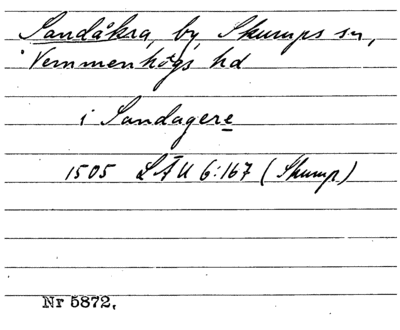 Sandåkra, by, Skurups sn,
Vemmenhögs hd
i Sandagere
1505 LÄU 6:167 (Skurup)
Nr 5872,